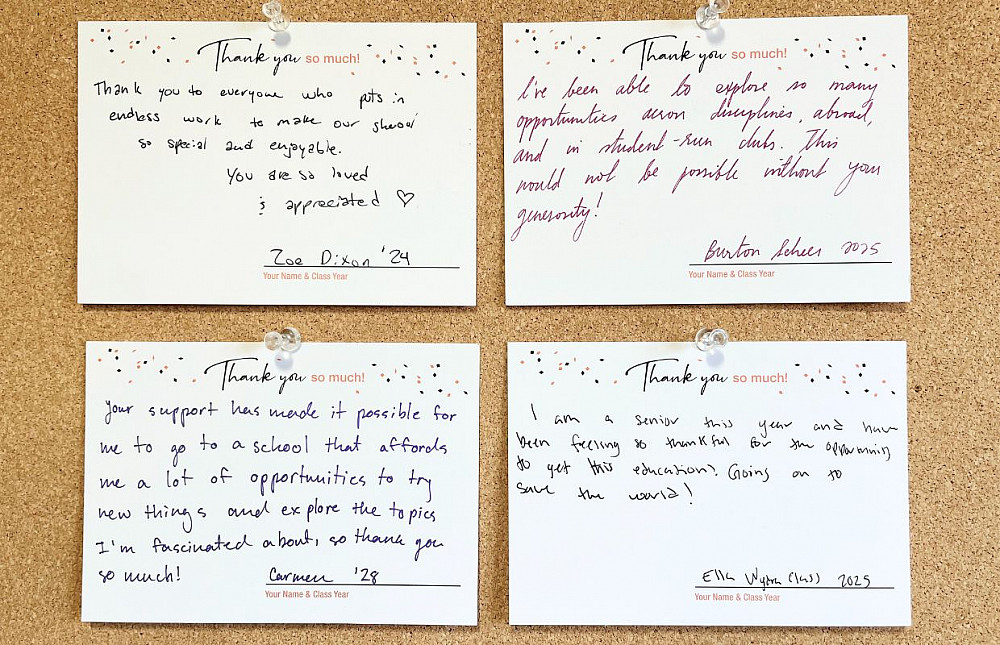 Thank you so much!
Thank you to everyone who puts in
endless work to make our school
so special and enjoyable.
You are so loved
& appreciated ♡
Zoe Dixon '24
Your Name & Class Year
Thank you so much!
I've been able to explore so many
opportunities across disciplines, abroad,
and in student-run clubs. This
would not be possible without your
generosity!
Burton 2025
Your Name & Class Year
Thank you so much!
Your support has made it possible for
me to go to a school that affords
me a lot of opportunities to try
new things and explore the topics
I'm fascinated about, so thank you
so much!
Carmen '28
Your Name & Class Year
Thank you so much!
I am a senior this year and have
been feeling so thankful for the opportunity
to get this education! Going on to
save the world!
Ella Class 2025
Your Name & Class Year